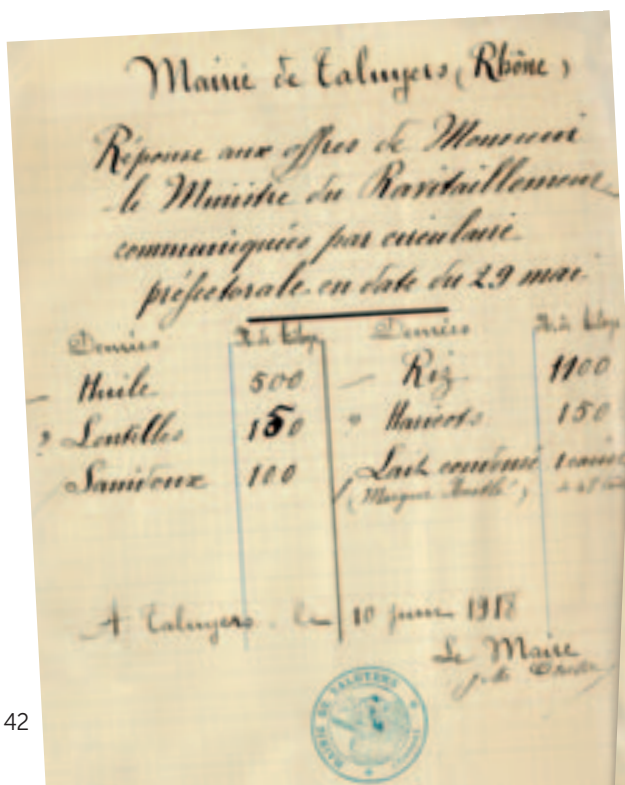 Mairie de Taluyers (Rhône)
Réponse aux offres de Monsieur
le Ministre du Ravitaillement
communiquées par circulaire
préfectorale en date du 29 mai
Denrées N. de kilogs Denrées N. de kilogs
Huile 500 Riz 1100
Lentilles 150 Haricots 150
Saindoux 100 Lait condensé 1 caisse
(Marque Nestlé)
A Taluyers le 10 juin 1918
Le Maire
MAIRIE DE TALUYERS
42